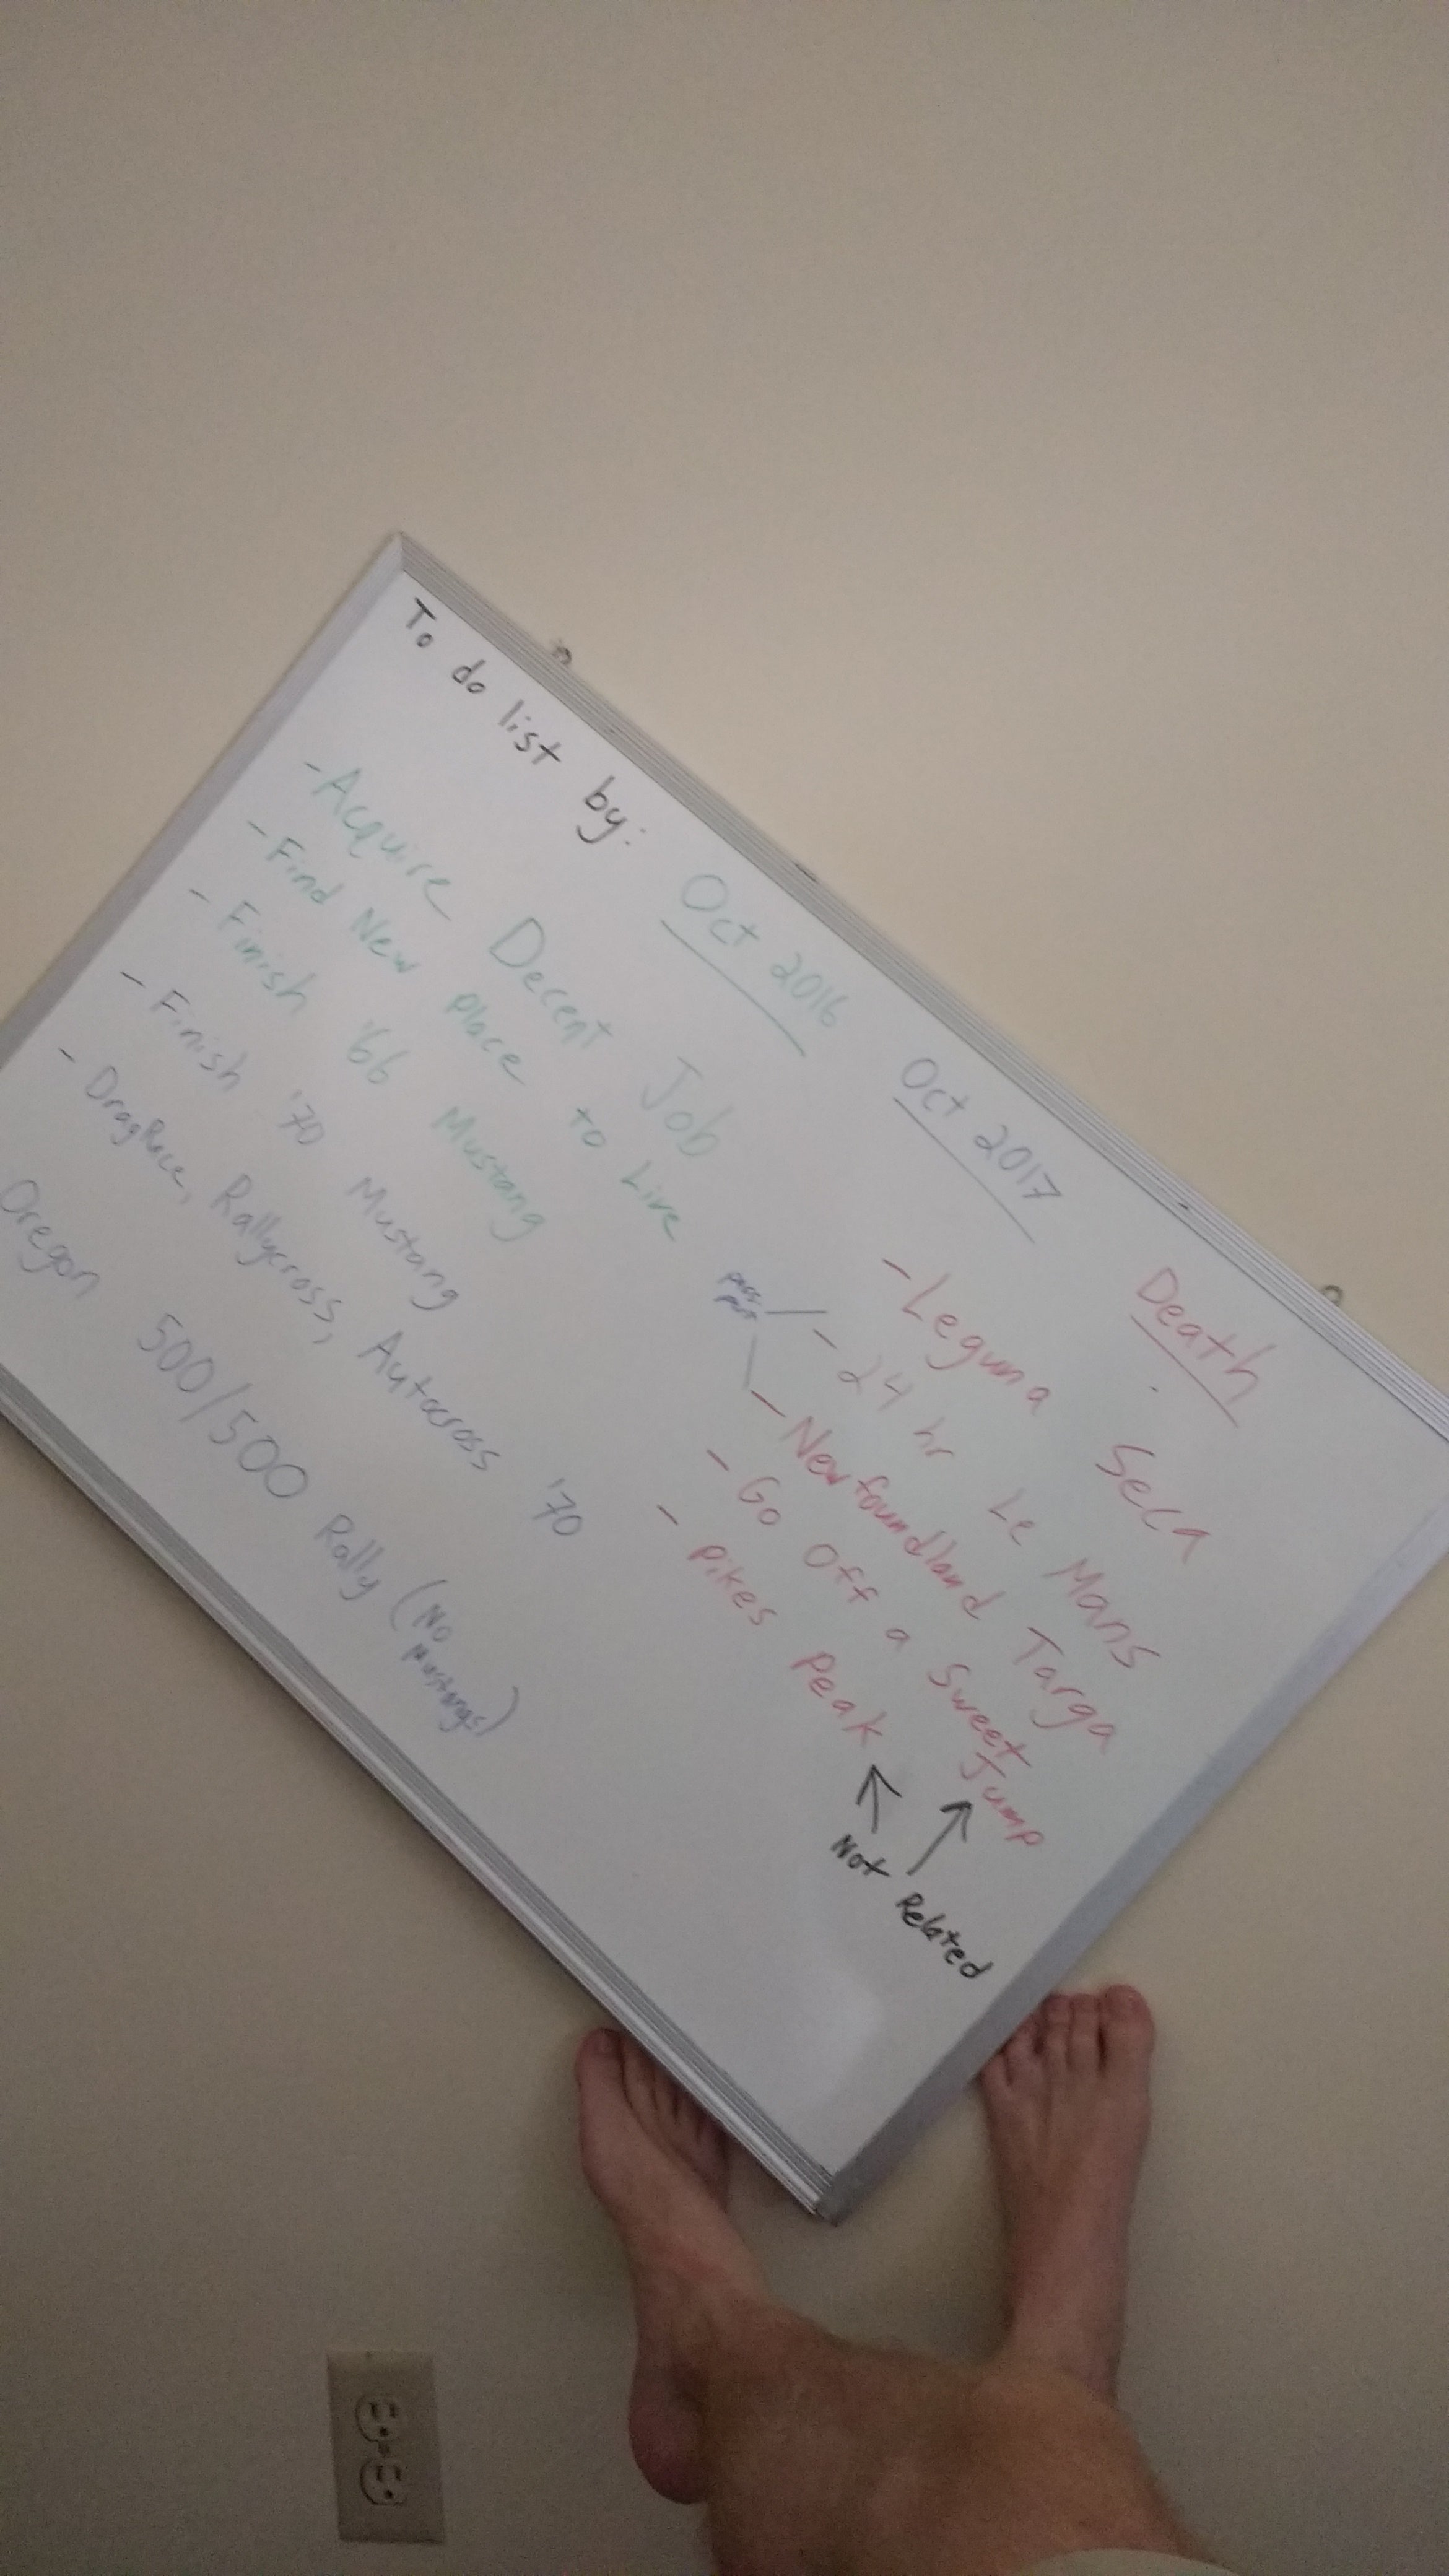 To do list by: Oct 2016 Oct 2017 Death
-Acquire Decent Job
-Find New Place to Live
-Finish '66 Mustang
-Finish '70 Mustang
-Drag Race, Rallycross, Autocross '70
Oregon 500/500 Rally (No Mustangs)
-Leguna Seca
pass port
-24 hr Le Mans
-Newfoundland Targa
-Go Off a Sweet Jump
-Pikes Peak
Not Related